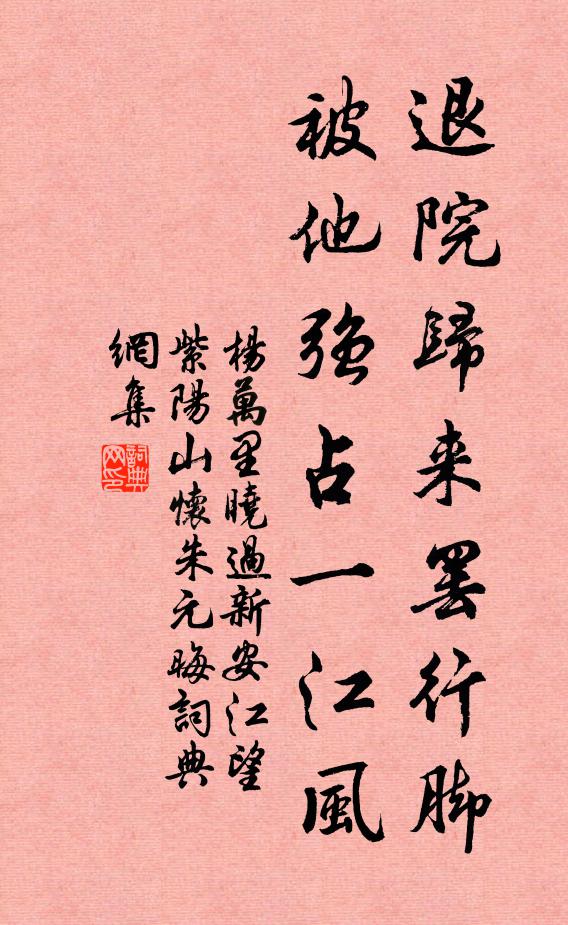 退院歸来罢行脚
被他強占一江風
楊萬里曉過新安江望
紫陽山懷朱元晦詞典
網集
詞典网印